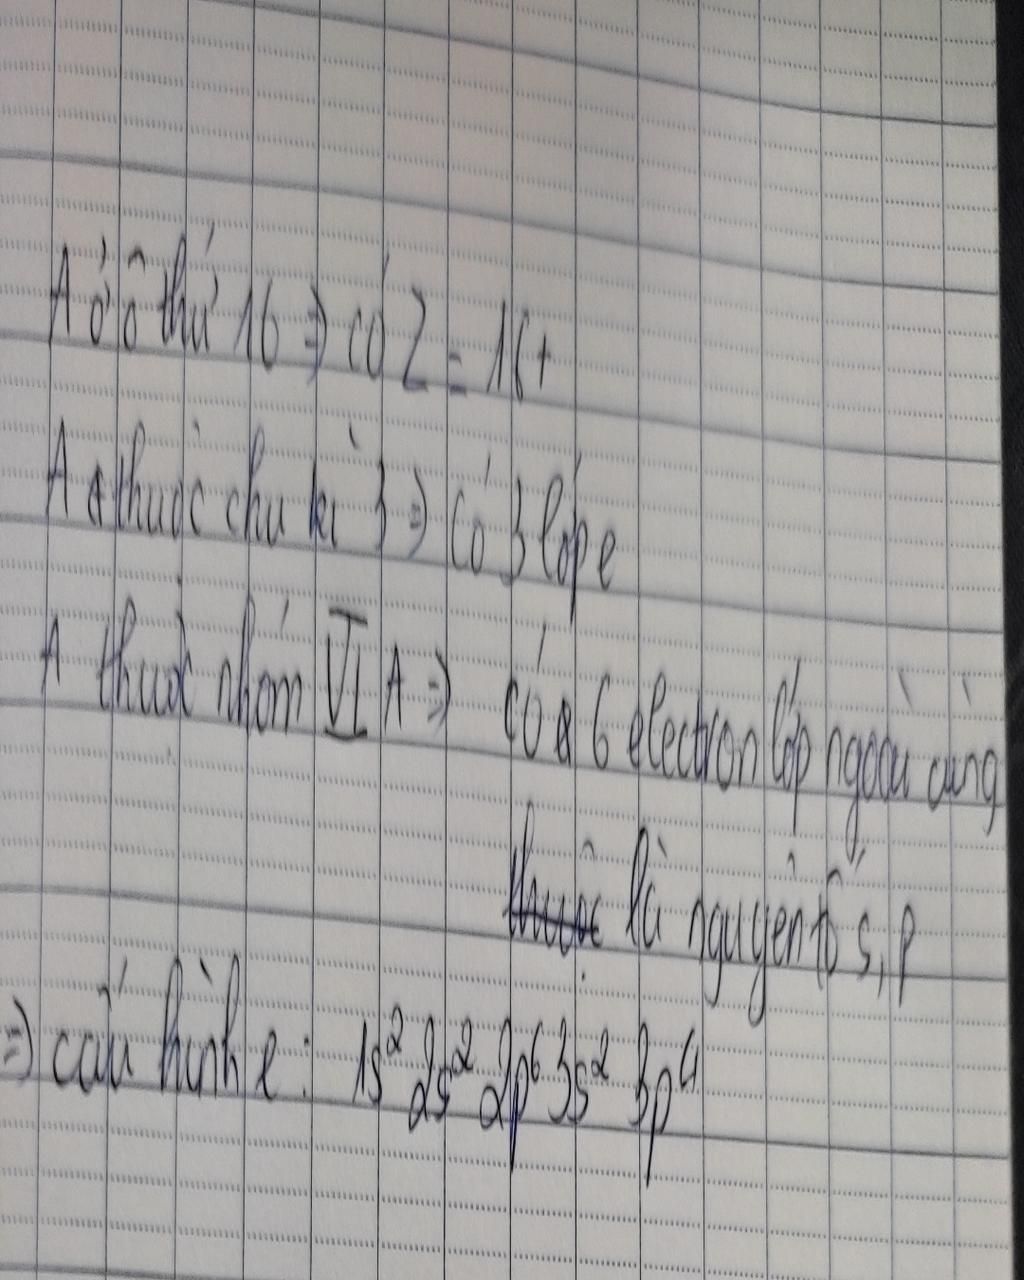 A ở ô thứ 16 => có Z = 16+
A thuộc chu kì 3 => có 3 lớp e
A thuộc nhóm VIA => có 6 electron lớp ngoài cùng
là nguyên tố s, p
=> cấu hình e: 1s² 2s² 2p⁶ 3s² 3p⁴